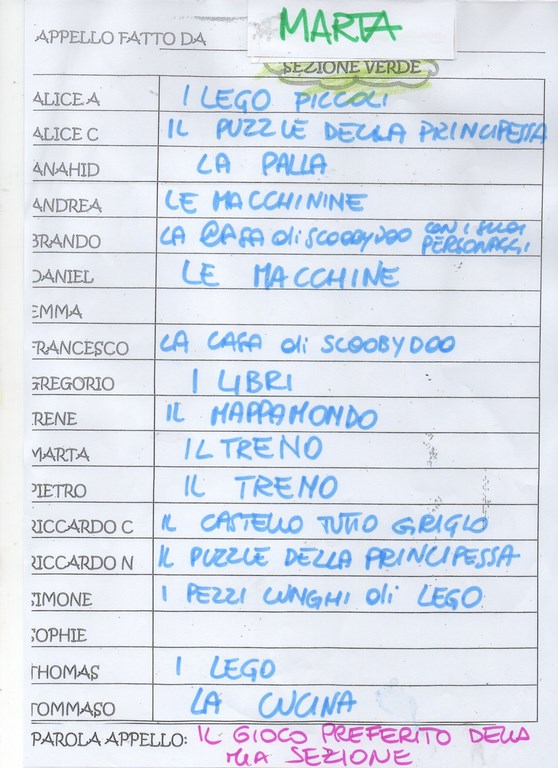 APPELLO FATTO DA MARTA
SEZIONE VERDE
ALICE A I LEGO PICCOLI
ALICE C IL PUZZLE DELLA PRINCIPESSA
ANAHID LA PALLA
ANDREA LE MACCHININE
BRANDO LA CASA di SCOOBYDOO CON I SUOI PERSONAGGI
DANIEL LE MACCHINE
EMMA
FRANCESCO LA CASA di SCOOBYDOO
GREGORIO I LIBRI
IRENE IL MAPPAMONDO
MARTA IL TRENO
PIETRO IL TRENO
RICCARDO C IL CASTELLO TUTTO GRIGIO
RICCARDO N IL PUZZLE DELLA PRINCIPESSA
SIMONE I PEZZI LUNGHI di LEGO
SOPHIE
THOMAS I LEGO
TOMMASO LA CUCINA
PAROLA APPELLO: IL GIOCO PREFERITO DELLA
MIA SEZIONE